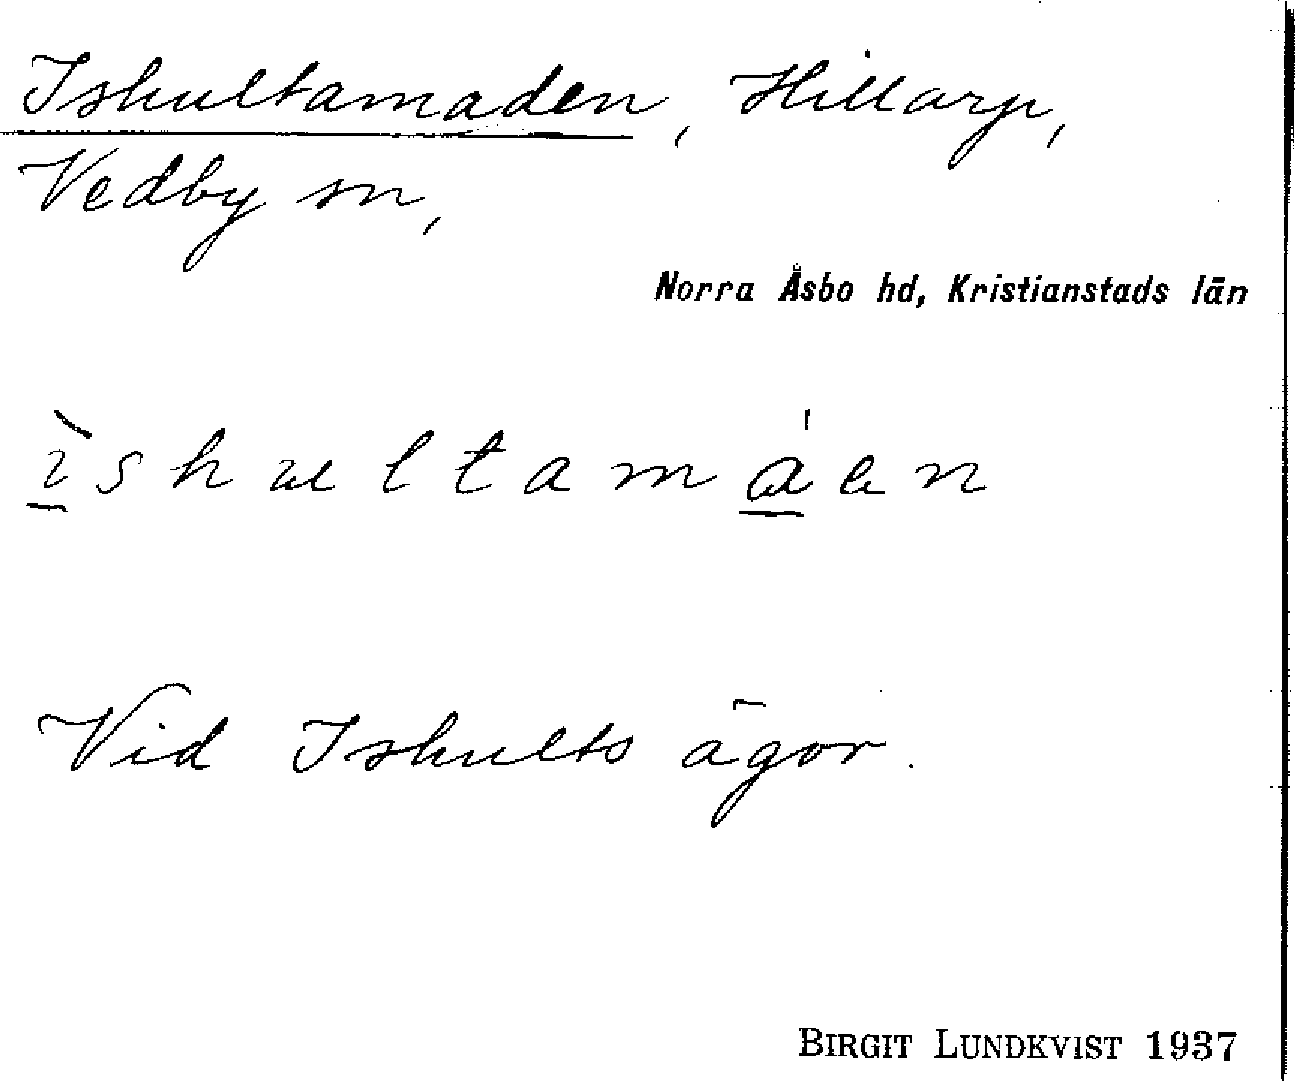 Ishultamaden, Hillarp,
Vedby sn,
Norra Åsbo hd, Kristianstads län
ìshultamáen
Vid Ishults ägor.
BIRGIT LUNDKVIST 1937